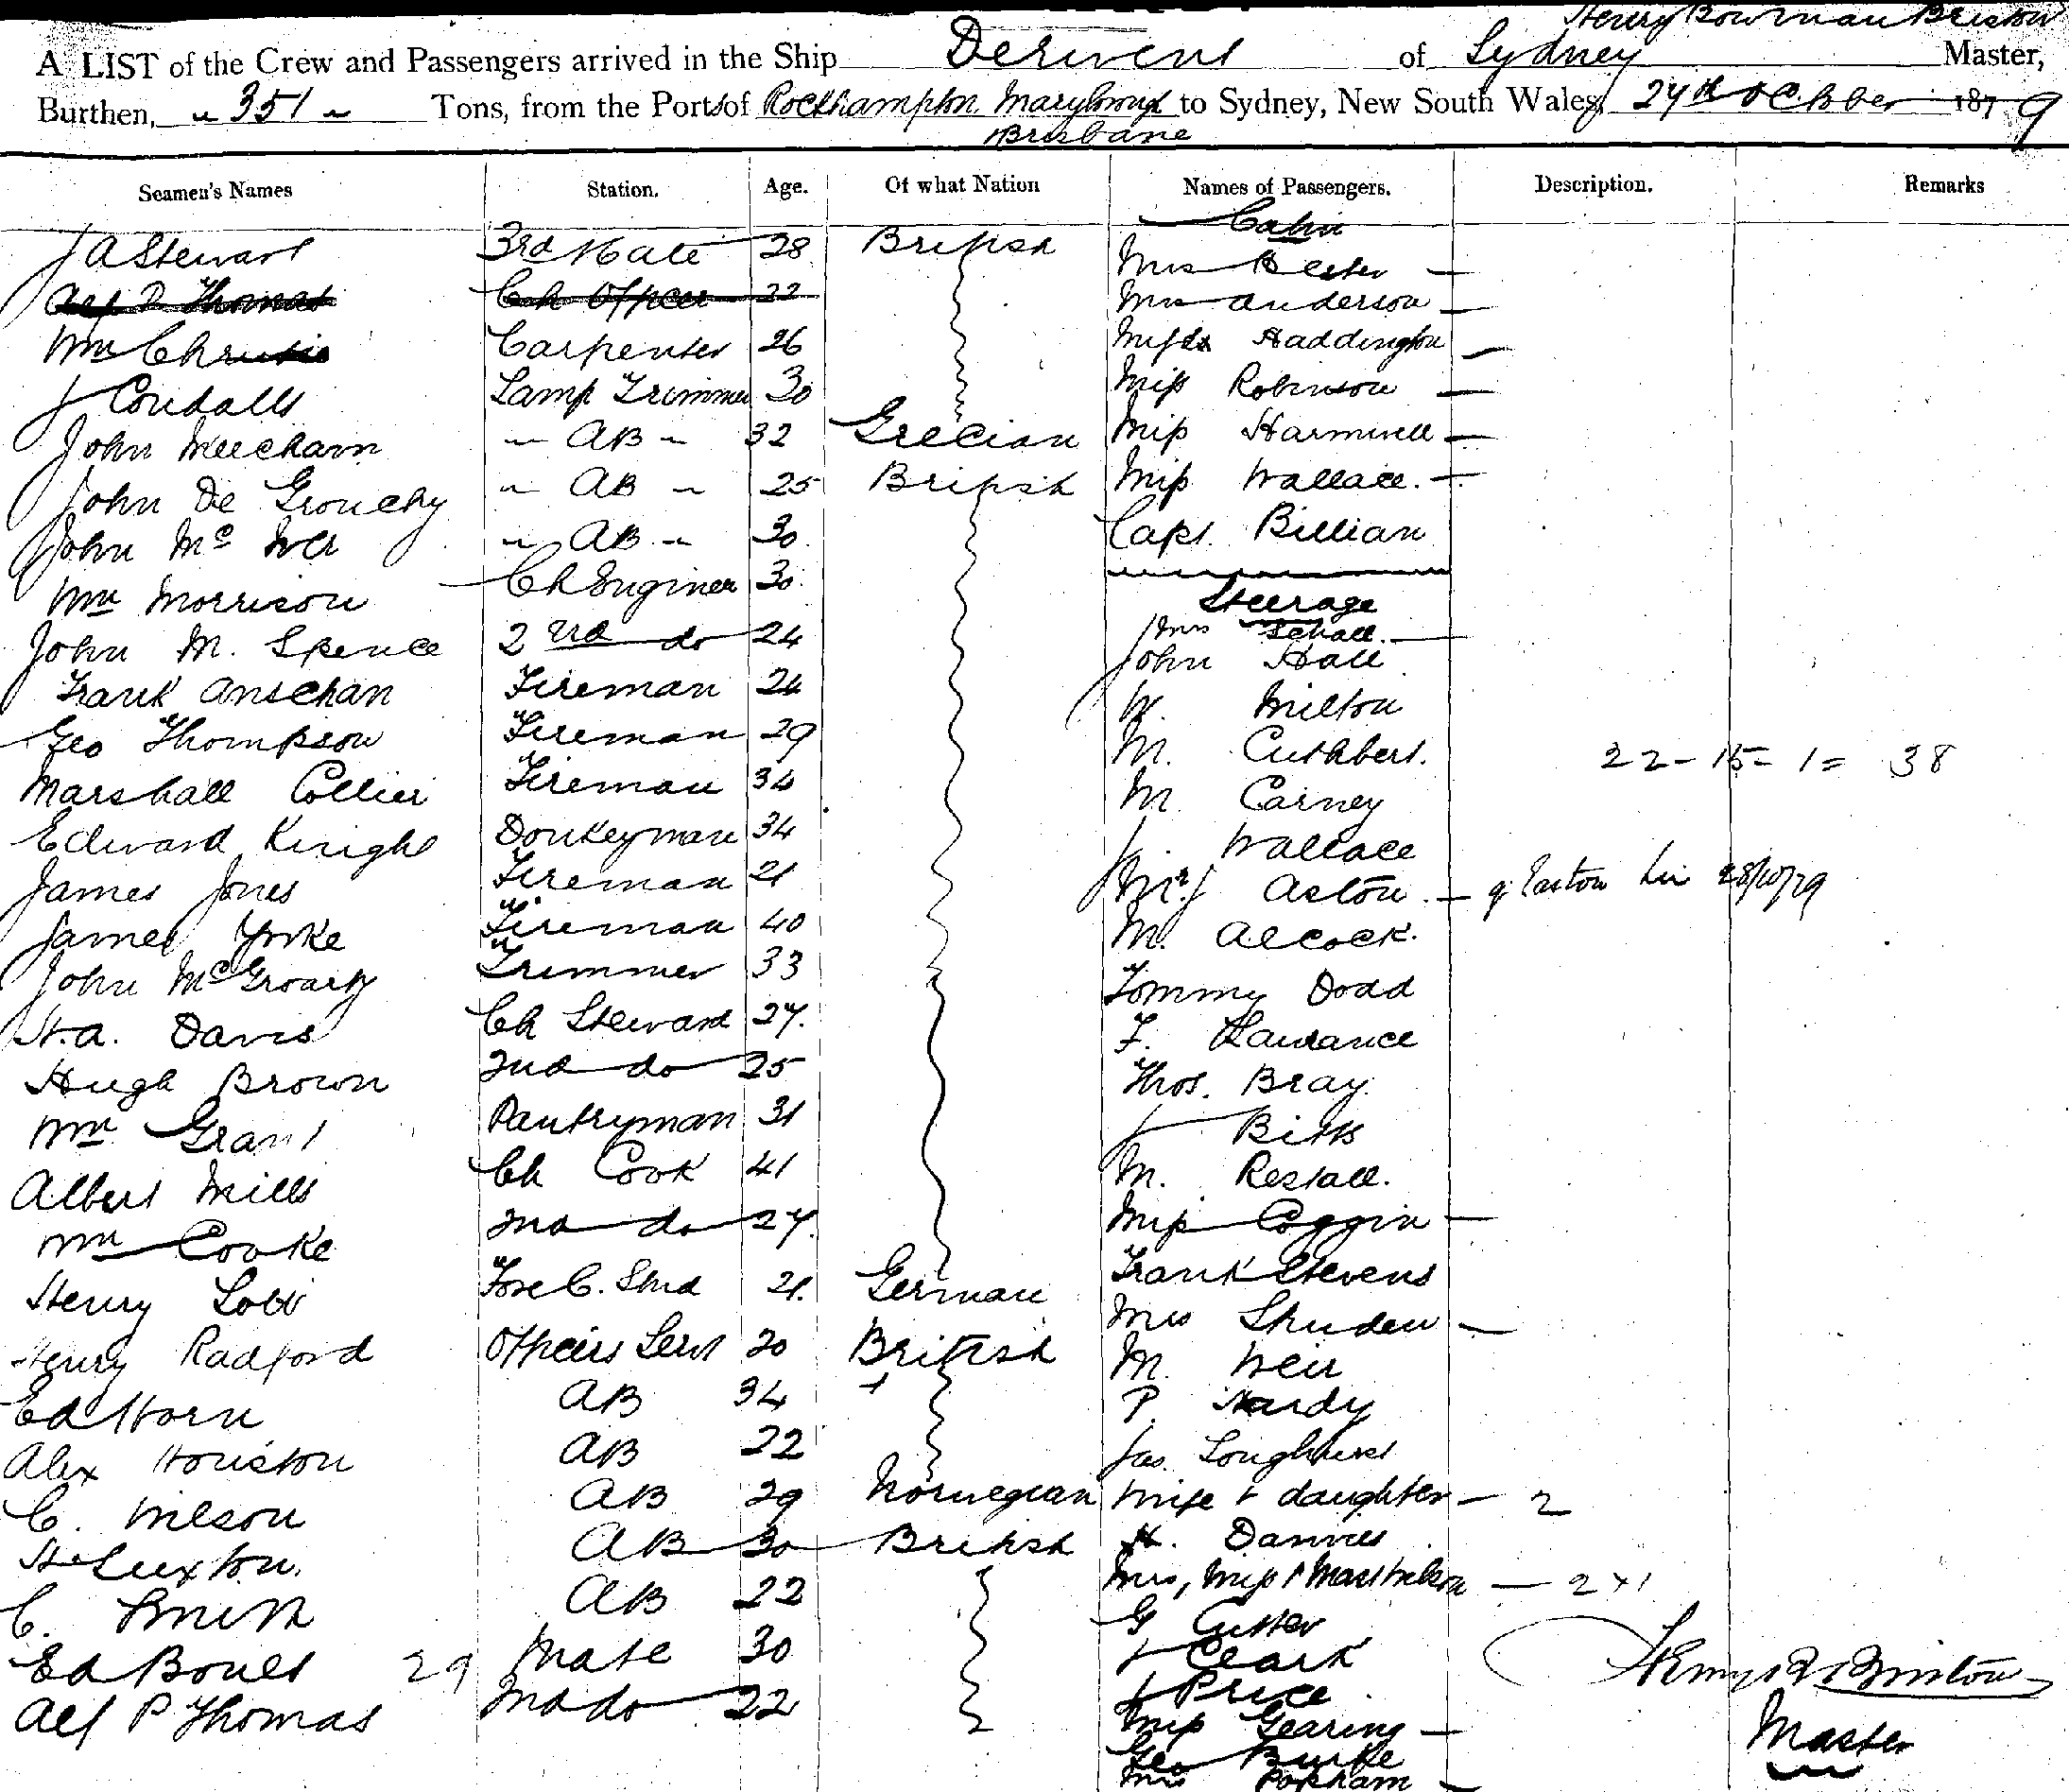 Henry Bowman Bristow
A LIST of the Crew and Passengers arrived in the Ship Derwent of Sydney Master,
Burthen, 351 Tons, from the Ports of Rockhampton Maryboro' to Sydney, New South Wales, 24th October 1879
Brisbane
Seamen's Names Station. Age. Of what Nation Names of Passengers. Description. Remarks
Cabin
J A Stewart 3rd Mate 28 British Mrs Bester —
Alf P Thomas Ch Officer 22 Mrs Anderson —
Wm Christie Carpenter 26 Miss Haddington —
J Condalls Lamp Trimmer 30 Miss Robinson —
John Meecham " AB " 32 Grecian Miss Harmwell —
John De Grouchy " AB " 25 British Miss Wallace. —
John Mc " AB " 30 Capt. Billian
Wm Morrison Ch Enginer 30
Steerage
John M. Spence 2nd do 24 Mrs Schall. —
John Hall
Frank Anschan Fireman 24 W. Milton
Geo Thompson Fireman 29 M. Cuthbert. 22 - 15 - 1 = 38
Marshall Collier Fireman 34 M. Carney
Edward Knight Donkeyman 34 J. Wallace
James Jones Fireman 21 Mr J Aston — 28/10/79
James Yorke Fireman 40 M. Alcock.
John McGroarty Trimmer 33 Tommy Dodd
H. A. Davis Ch Steward 27. F. Lawrance
Hugh Brown 2nd do 25 Thos. Bray.
Wm Grant Pantryman 31 J Bitts
Albert Mills Ch Cook 41 M. Restall.
Wm Cooke 2nd do 27. Miss Coggin —
Henry Low Fore C. Stwd 21. German Frank Stevens
Mrs Shuden —
Henry Radford Officers Servt 20 British M. Weir
Ed Horn AB 34 P. Hardy
Alex Houston AB 22 Jas. Longhurst
C. Nilson AB 29 Norwegian Wife & daughter — 2
H Luxton. AB 30 British H. Danvers
C. Smith AB 22 Mrs, Miss & Mast Nelson — 2 + 1
G Cutter
Ed Boult 29 Mate 30 J Clark
Alf P Thomas 2nd do 22 J Price
Miss Gearing —
Geo Burke
Mrs Popham —
Henry B. Bristow
Master